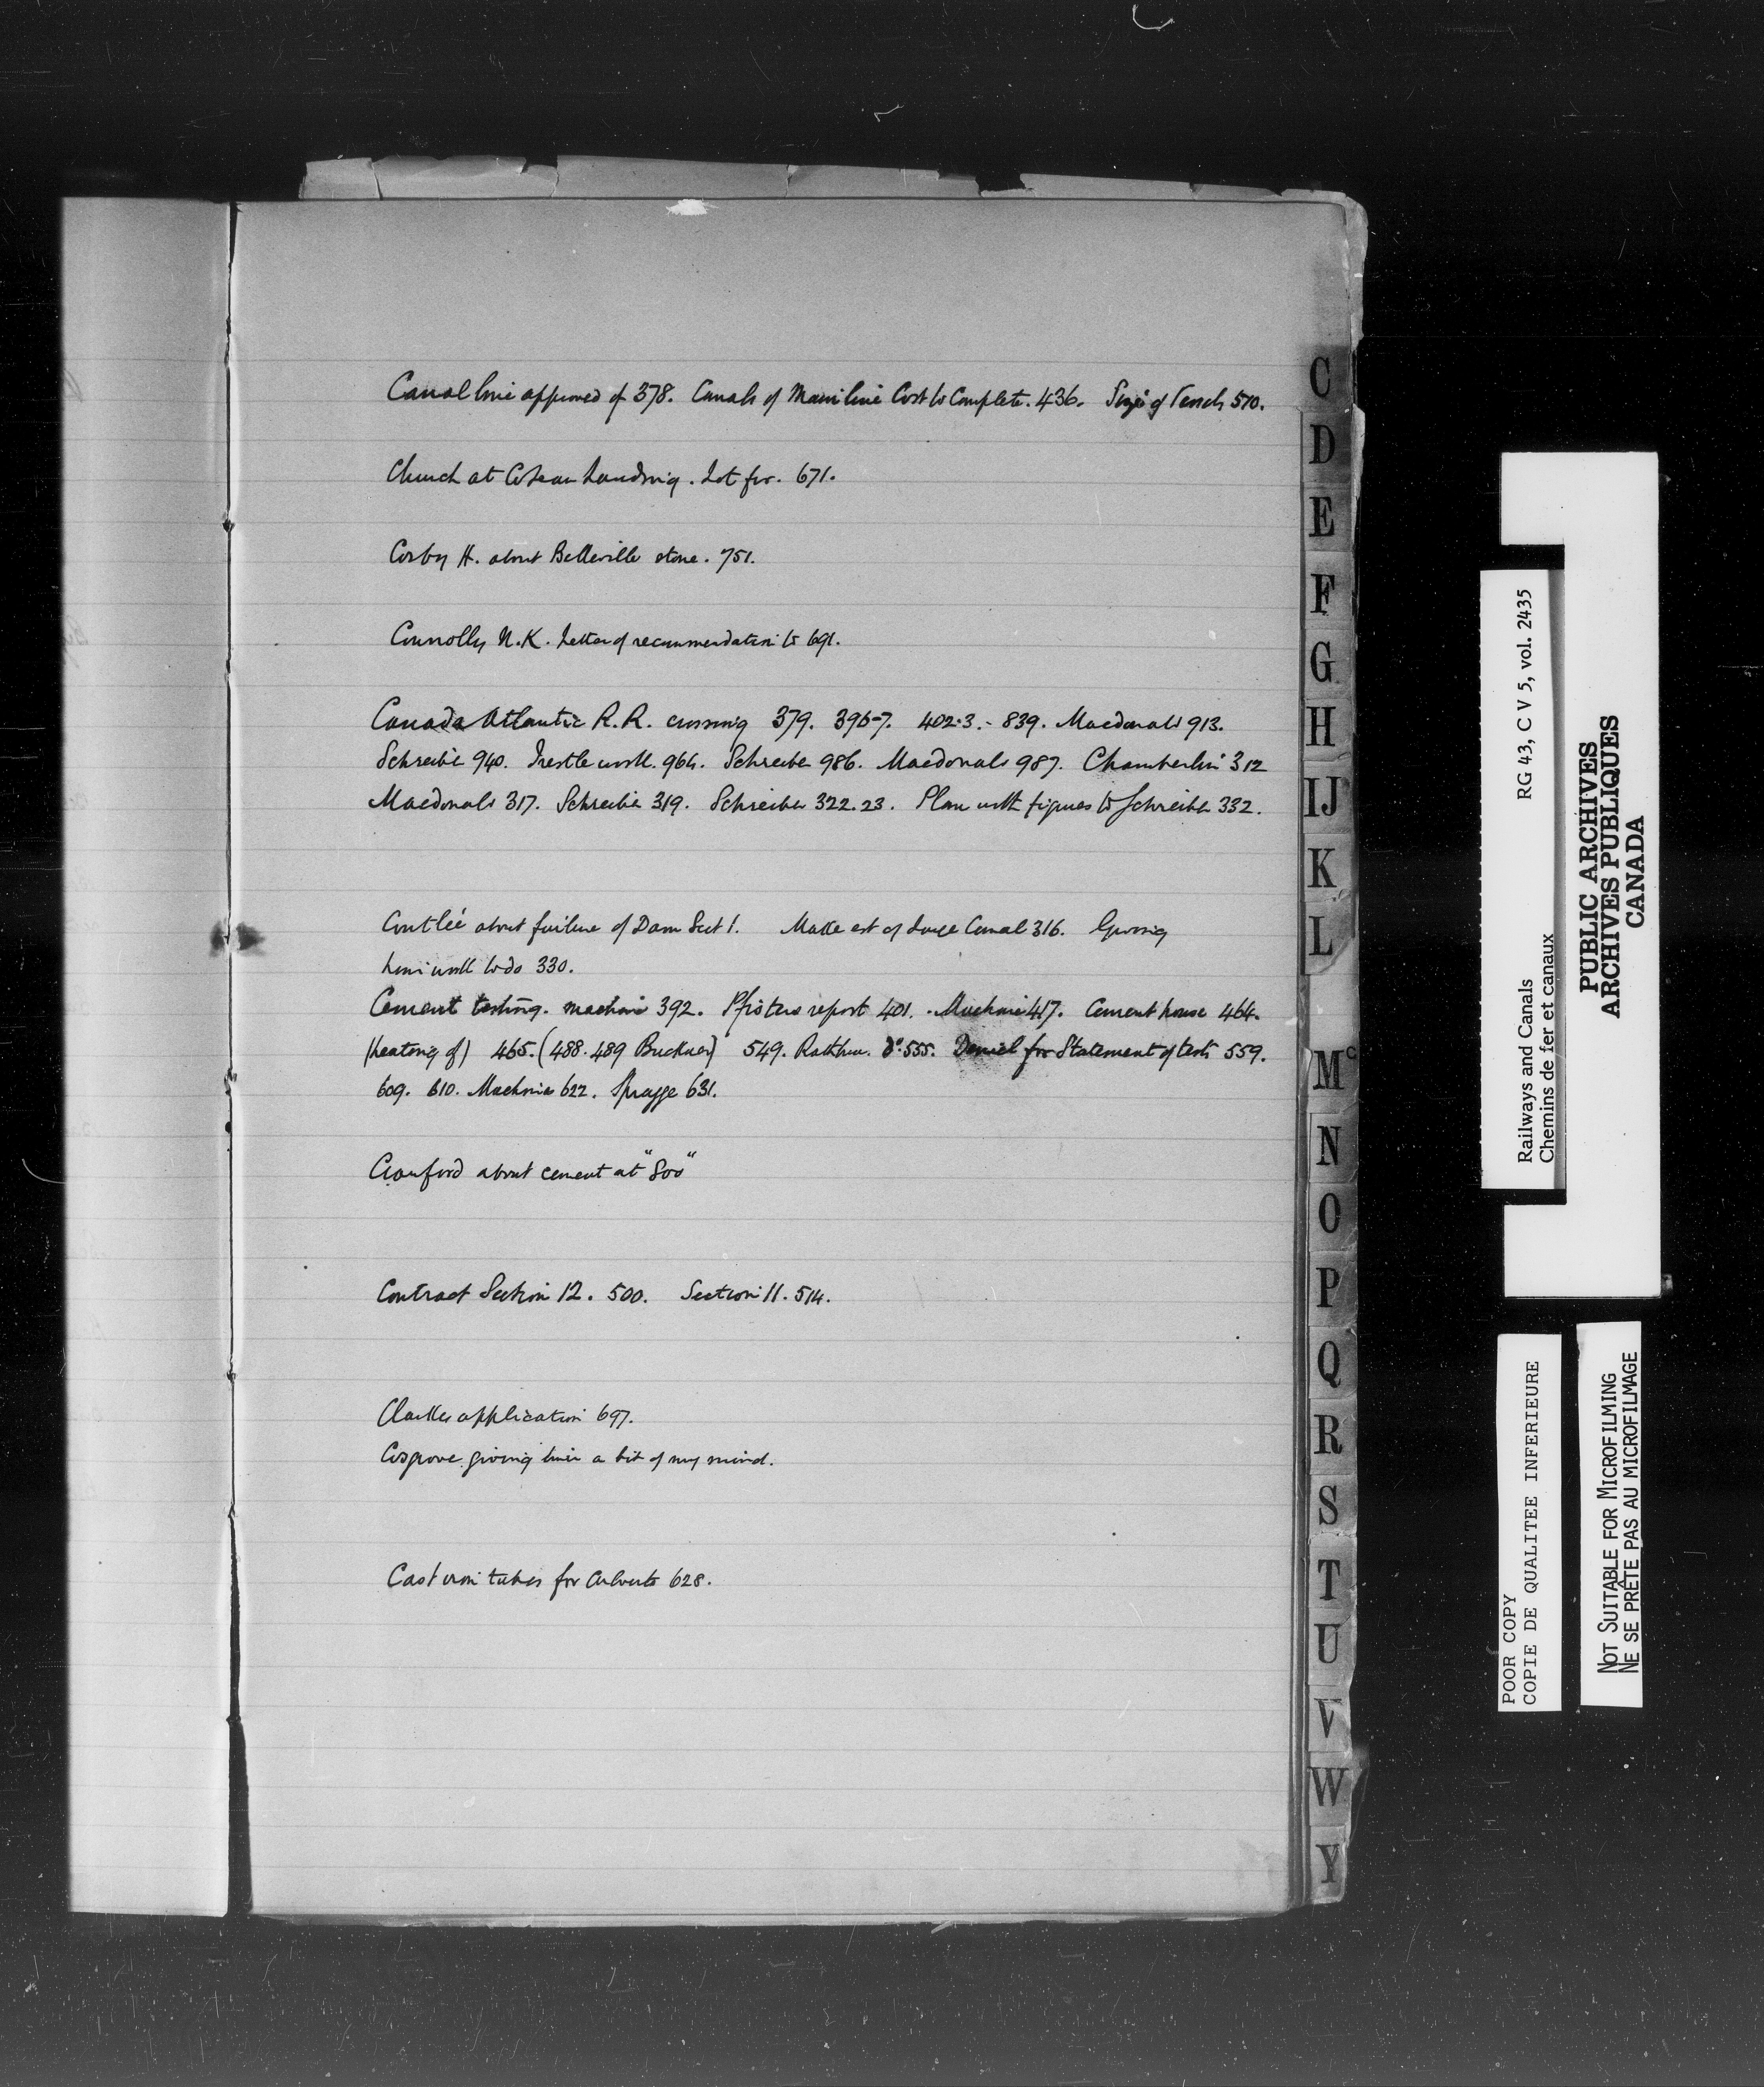 Canal line approved of 378. Canals of Main line Cost to Complete. 436. Size of Vessels 570.
Church at Coteau Landing. Lot for. 671.
Corby H. about Belleville stone. 751.
Connolly N.K. Letter of recommendation to 691.
Canada Atlantic R.R. crossing 379. 396-7. 402-3.- 839. Macdonald 913.
Schreiber 940. Trestle work. 964. Schreiber 986. Macdonald 987. Chamberlin 312
Macdonald 317. Schreiber 319. Schreiber 322.23. Plan with figures to Schreiber 332.
Coutlée about failure of Dam Sect 1. Make est of Canal 316. Giving
him work to do 330.
Cement testing. machine 392. Pfisters report 401. Machine 417. Cement house 464.
(heating of) 465. (488.489 Buckner) 549. Rathbun. do. 555. Daniel for Statement of tests 559.
609. 610. Machine 622. Spragge 631.
Crawford about cement at "Soo"
Contract Section 12. 500. Section 11. 514.
Clarkes application 697.
Cosgrove. giving him a bit of my mind.
Cast iron tubes for Culverts 628.
C
D
E
F
G
H
IJ
K
L
Mc
N
O
P
Q
R
S
T
U
V
W
Y
RG 43, C V 5, vol. 2435
Railways and Canals
Chemins de fer et canaux
PUBLIC ARCHIVES
ARCHIVES PUBLIQUES
CANADA
POOR COPY
COPIE DE QUALITEE INFERIEURE
NOT SUITABLE FOR MICROFILMING
NE SE PRÊTE PAS AU MICROFILMAGE